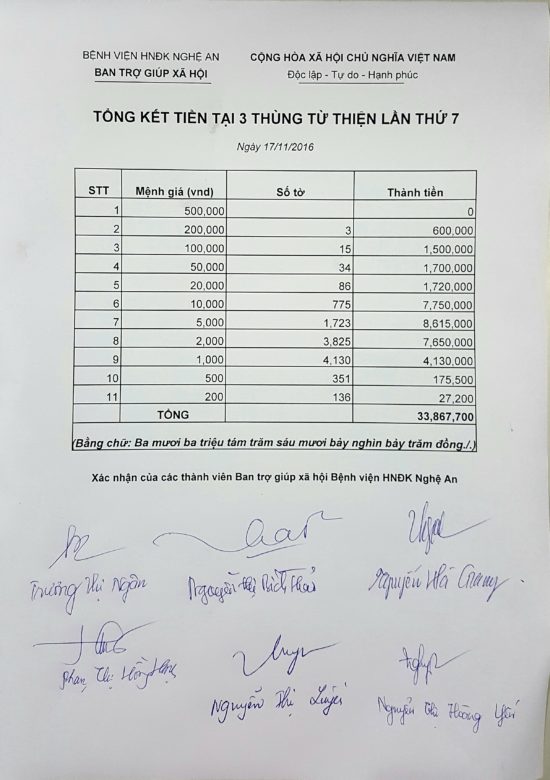 BỆNH VIỆN HNĐK NGHỆ AN CỘNG HÒA XÃ HỘI CHỦ NGHĨA VIỆT NAM
BAN TRỢ GIÚP XÃ HỘI Độc lập - Tự do - Hạnh phúc
TỔNG KẾT TIỀN TẠI 3 THÙNG TỪ THIỆN LẦN THỨ 7
Ngày 17/11/2016
STT Mệnh giá (vnd) Số tờ Thành tiền
1 500,000 0
2 200,000 3 600,000
3 100,000 15 1,500,000
4 50,000 34 1,700,000
5 20,000 86 1,720,000
6 10,000 775 7,750,000
7 5,000 1,723 8,615,000
8 2,000 3,825 7,650,000
9 1,000 4,130 4,130,000
10 500 351 175,500
11 200 136 27,200
TỔNG 33,867,700
(Bằng chữ: Ba mươi ba triệu tám trăm sáu mươi bảy nghìn bảy trăm đồng./.)
Xác nhận của các thành viên Ban trợ giúp xã hội Bệnh viện HNĐK Nghệ An
Trương Thị Ngân Nguyễn Thị Bích Nguyễn Hà
Phan Thị Hồng Nguyễn Thị Nguyễn Thị Hoàng Yến